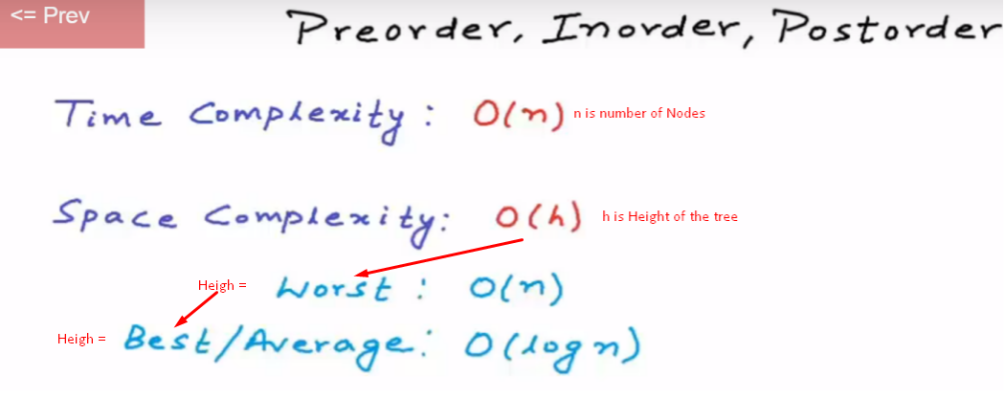 <= Prev
Preorder, Inorder, Postorder
Time Complexity: O(n) n is number of Nodes
Space Complexity: O(h) h is Height of the tree
Heigh = Worst: O(n)
Heigh = Best/Average: O(log n)